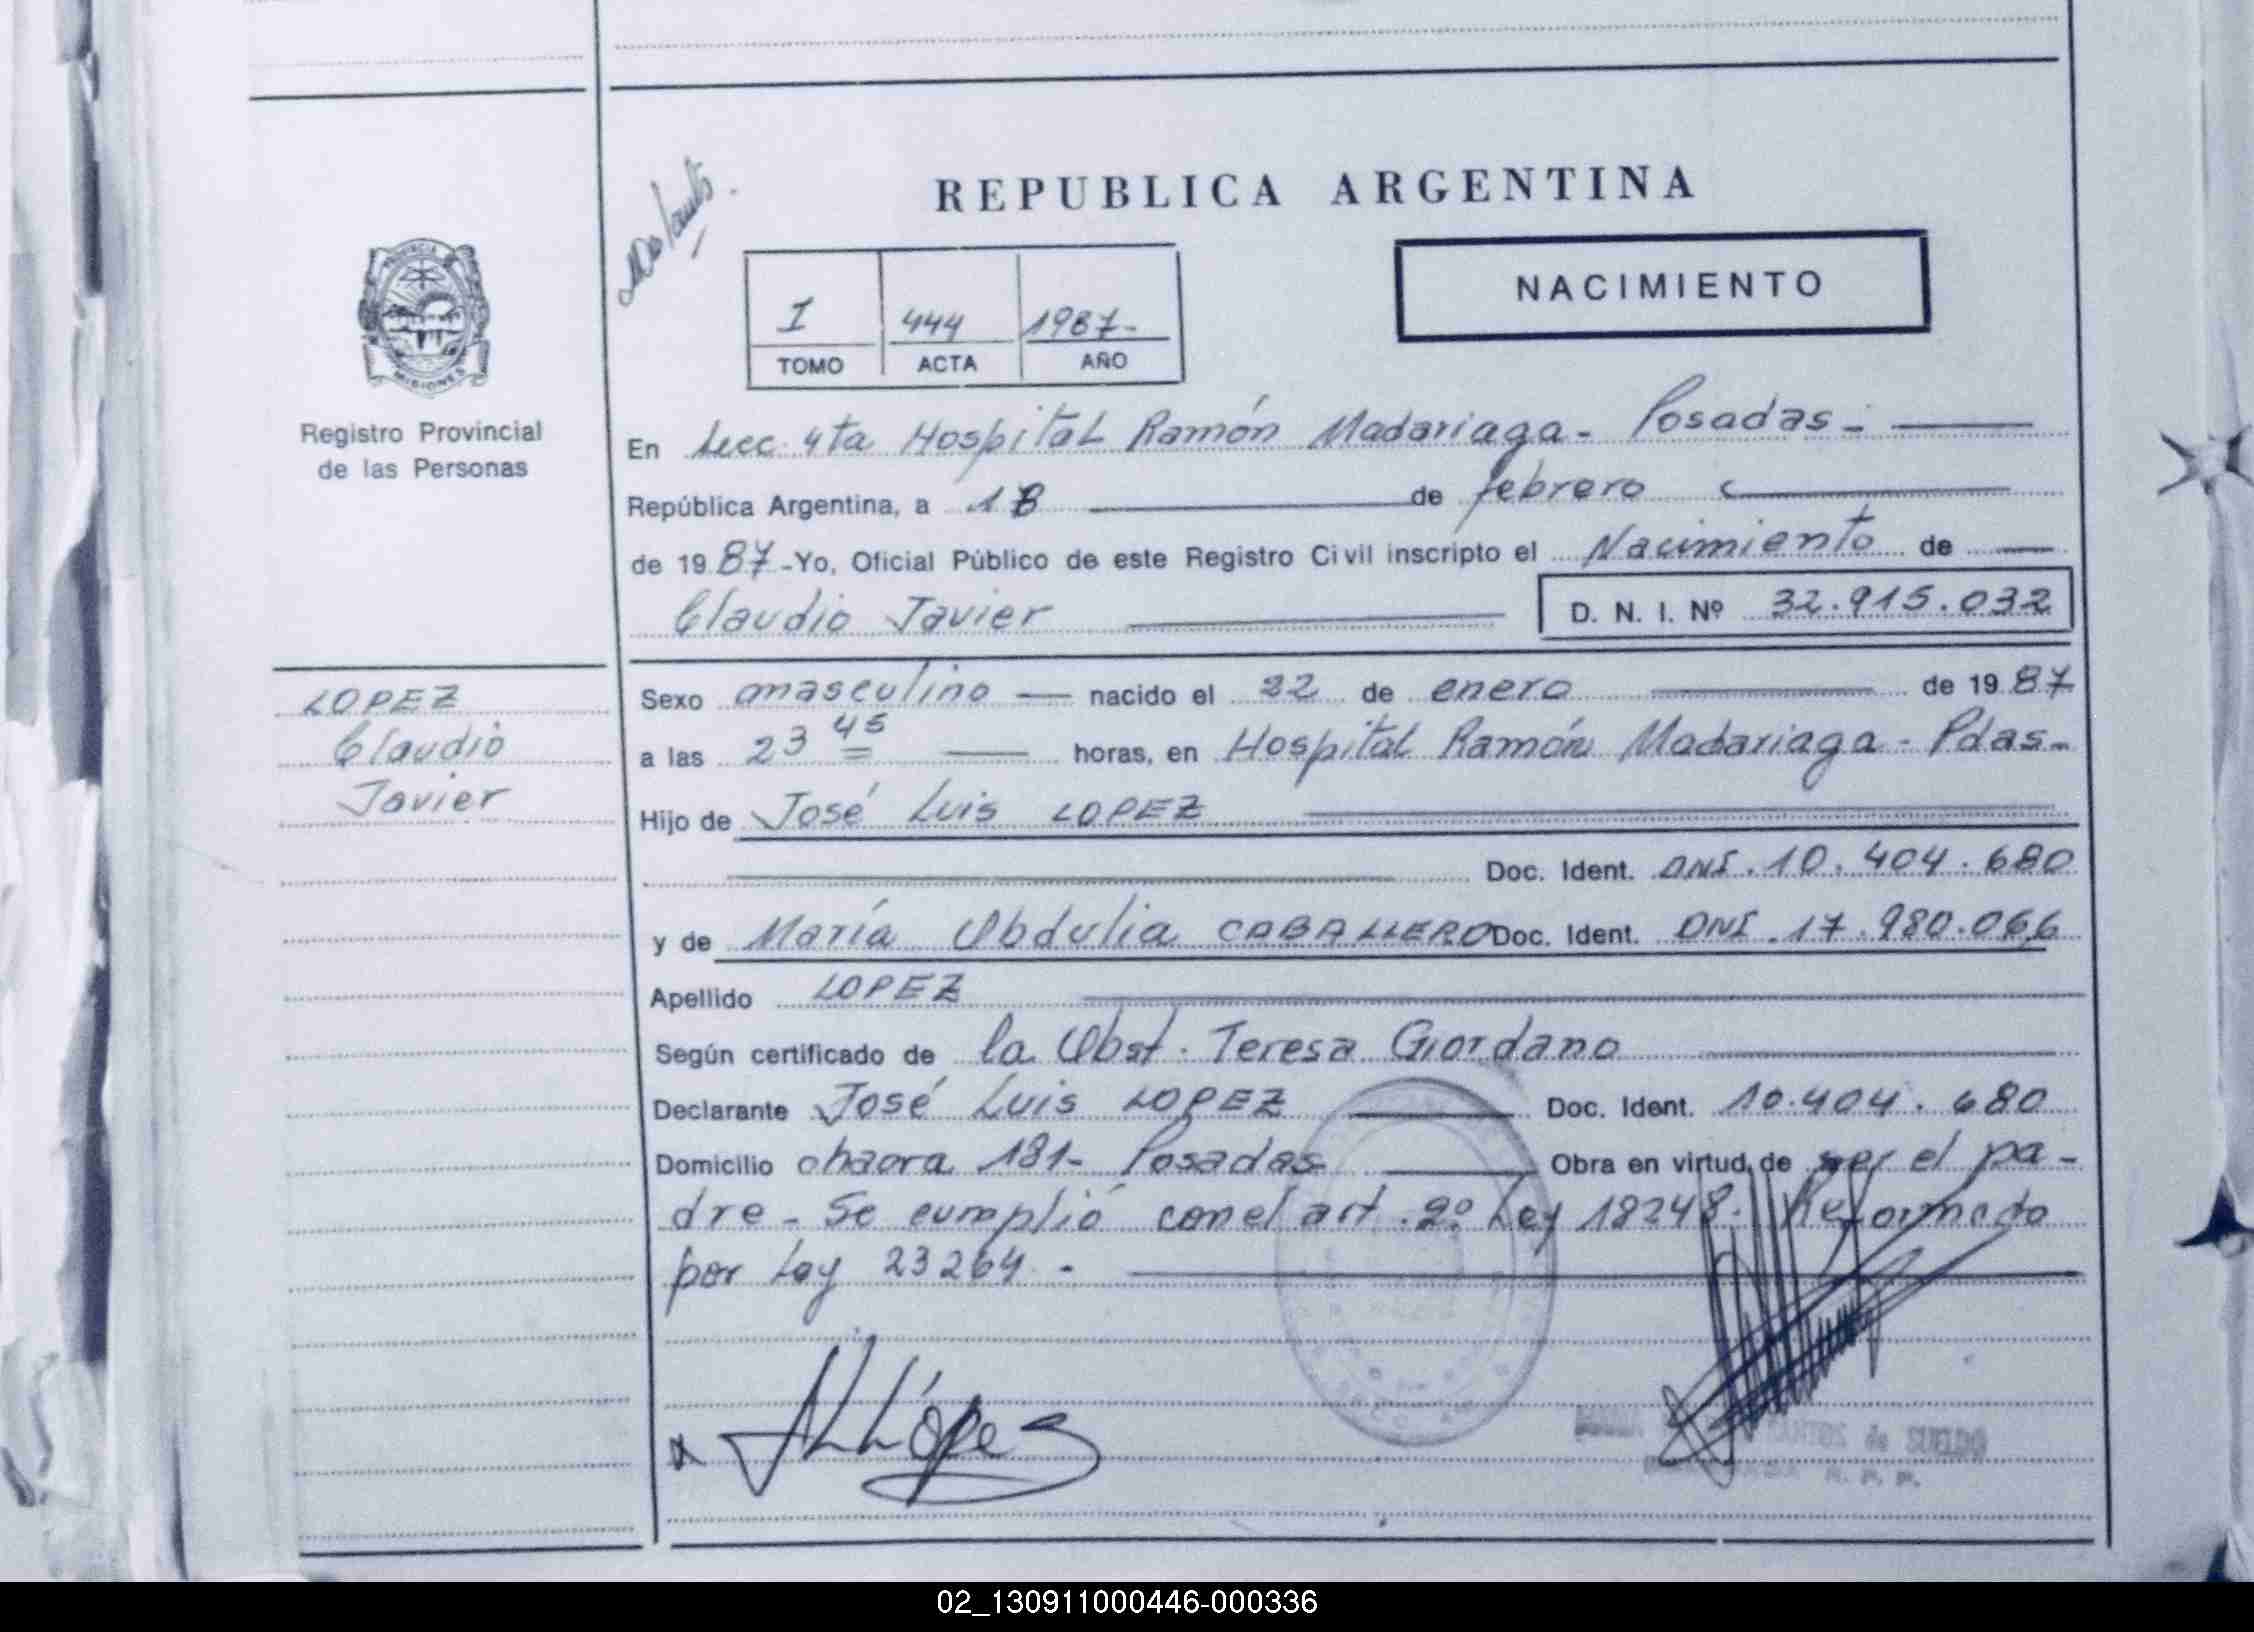 REPUBLICA ARGENTINA
NACIMIENTO
I 444 1987-
TOMO ACTA AÑO
PROVINCIA
MISIONES
Registro Provincial
de las Personas
En Secc. 4ta Hospital Ramón Madariaga - Posadas -
República Argentina, a 18 de febrero
de 1987 - Yo, Oficial Público de este Registro Civil inscripto el Nacimiento de
Claudio Javier D. N. I. Nº 32.915.032
LOPEZ
Claudio
Javier
Sexo masculino nacido el 22 de enero de 1987
a las 23 45 horas, en Hospital Ramón Madariaga - Pdas -
Hijo de José Luis LOPEZ
Doc. Ident. DNI. 10.404.680
y de María Obdulia CABALLERO Doc. Ident. DNI. 17.980.066
Apellido LOPEZ
Según certificado de la Obst. Teresa Giordano
Declarante José Luis LOPEZ Doc. Ident. 10.404.680
Domicilio chacra 181- Posadas Obra en virtud de ser el pa-
dre - Se cumplió con el art. 2º Ley 18248. Reformado
por Ley 23264 -
López
de SUELDO
R. P. P.
02_130911000446-000336